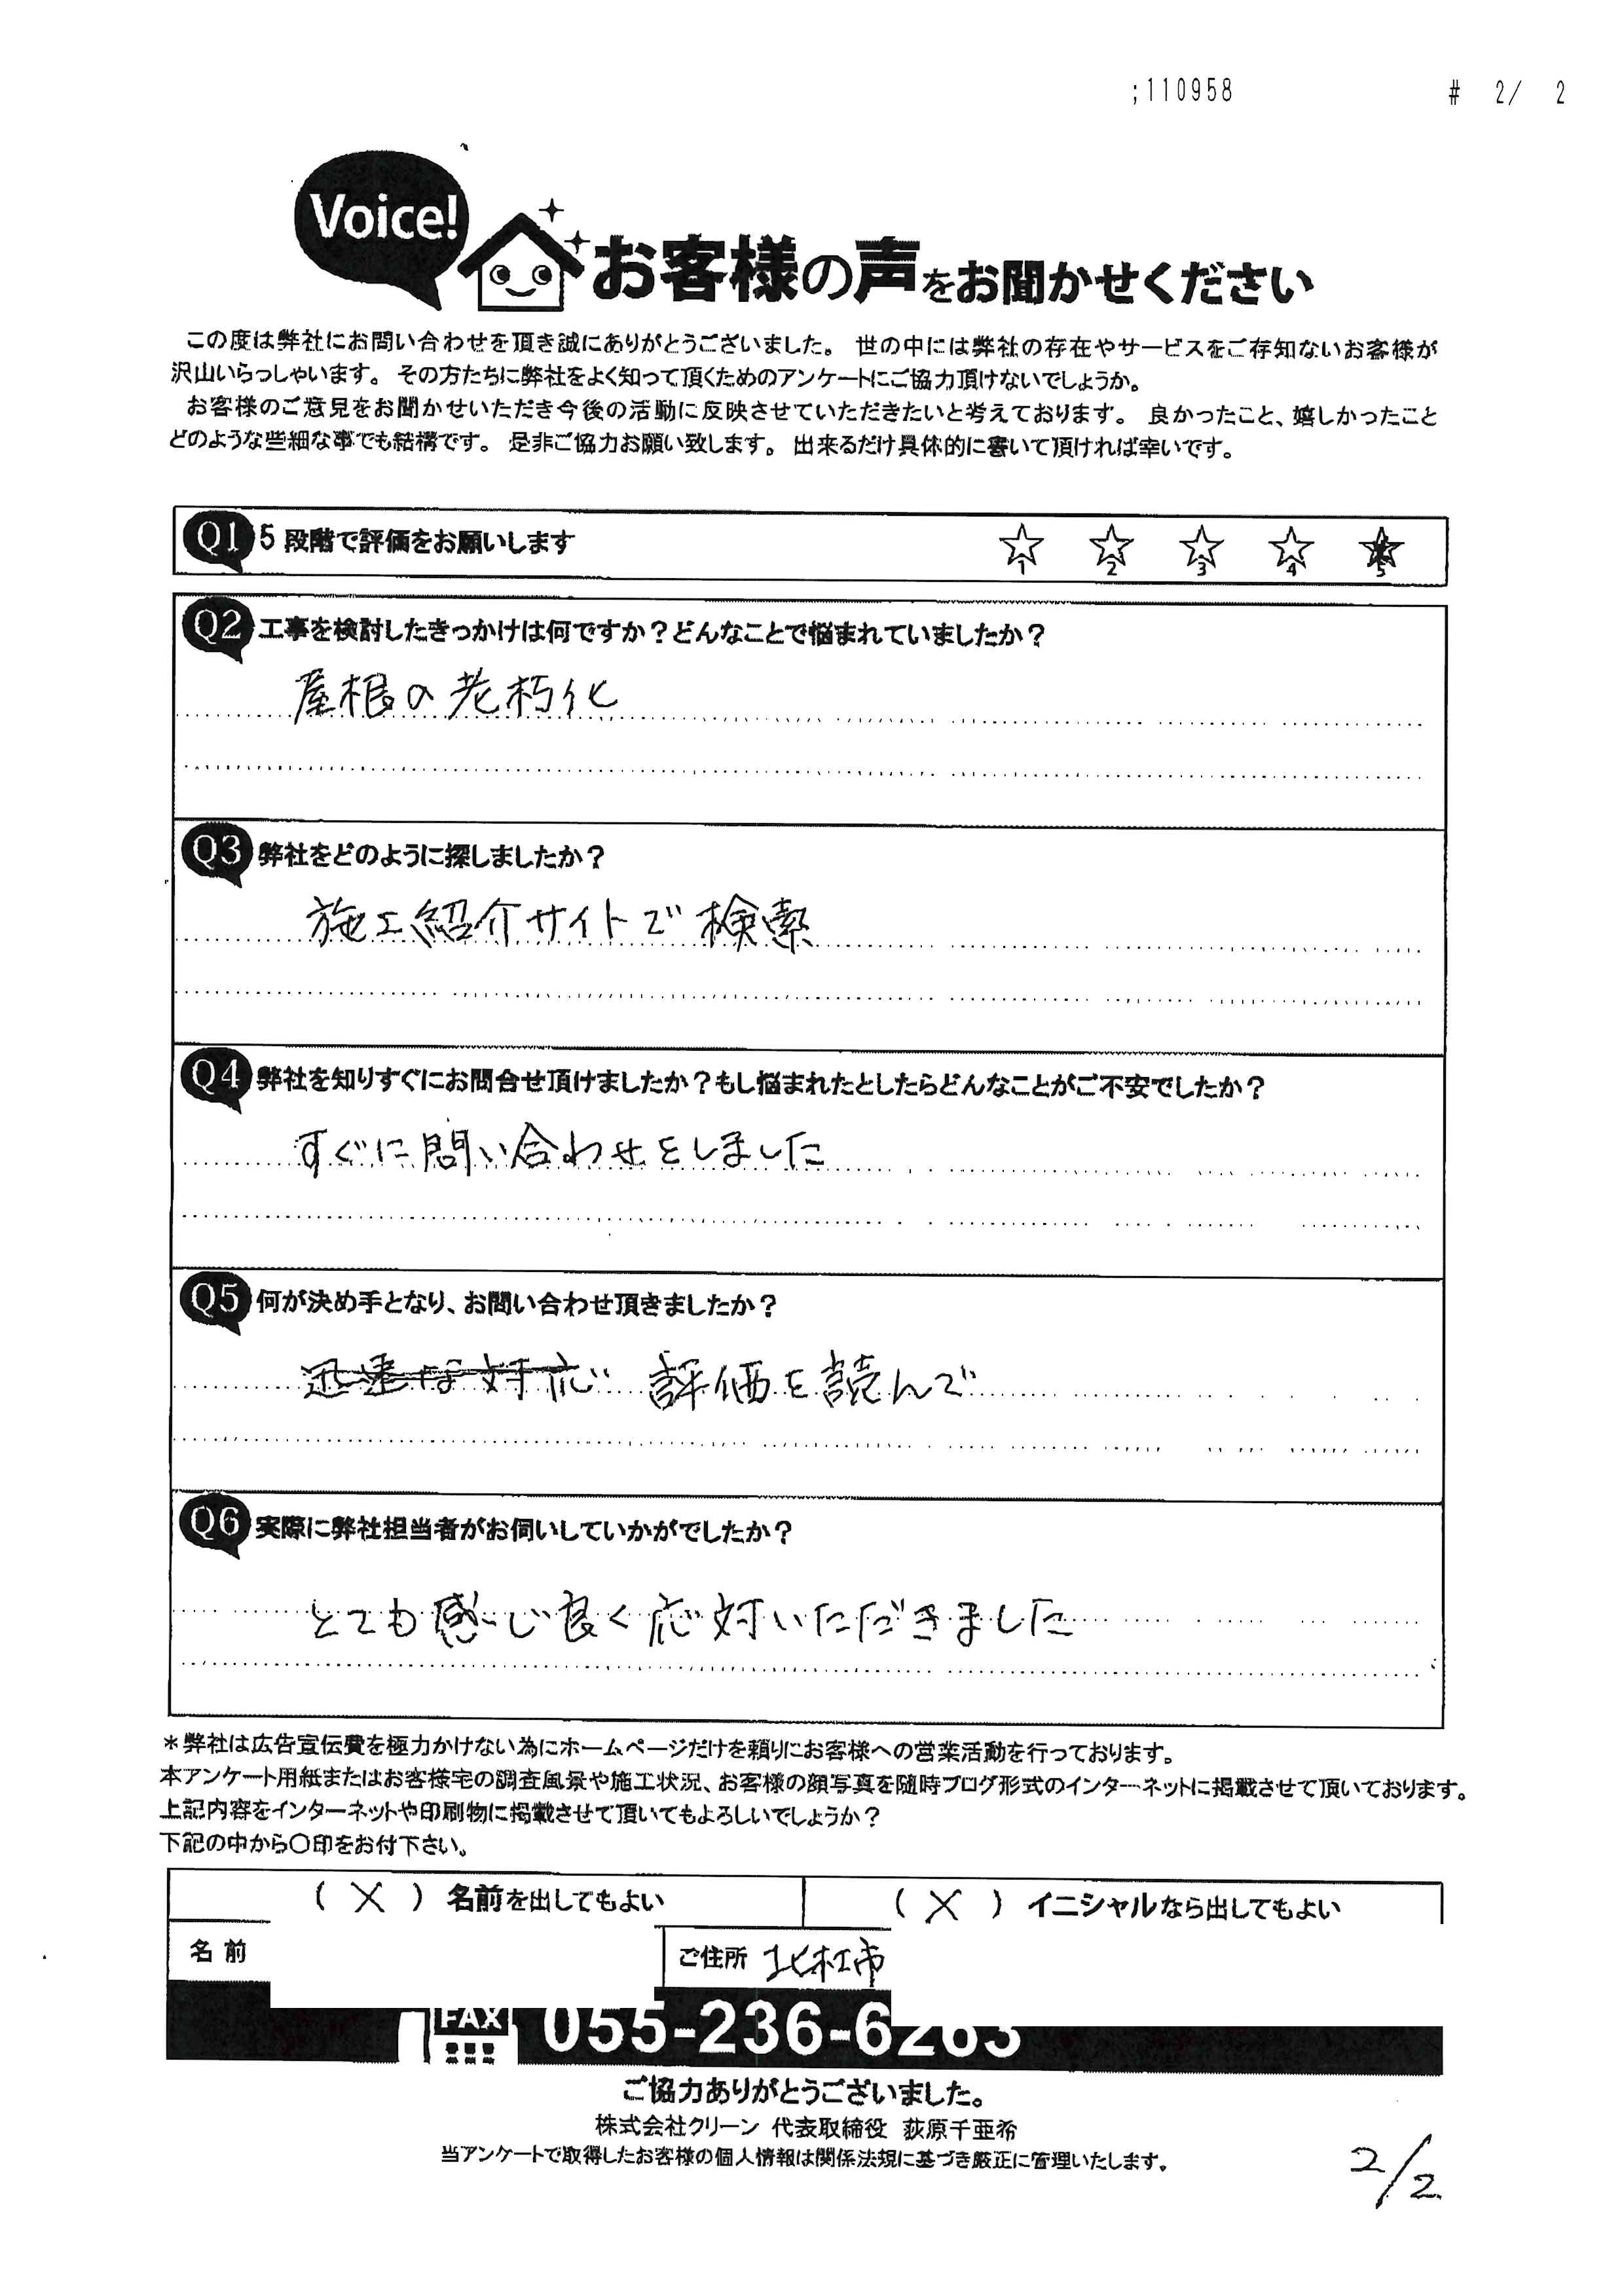 ;110958 # 2/ 2
Voice!
お客様の声をお聞かせください
この度は弊社にお問い合わせを頂き誠にありがとうございました。 世の中には弊社の存在やサービスをご存知ないお客様が
沢山いらっしゃいます。 その方たちに弊社をよく知って頂くためのアンケートにご協力頂けないでしょうか。
お客様のご意見をお聞かせいただき今後の活動に反映させていただきたいと考えております。 良かったこと、嬉しかったこと
どのような些細な事でも結構です。 是非ご協力お願い致します。 出来るだけ具体的に書いて頂ければ幸いです。
Q1 5 段階で評価をお願いします 1 2 3 4 5
Q2 工事を検討したきっかけは何ですか？どんなことで悩まれていましたか？
屋根の老朽化
Q3 弊社をどのように探しましたか？
施工紹介サイトで検索
Q4 弊社を知りすぐにお問合せ頂けましたか？もし悩まれたとしたらどんなことがご不安でしたか？
すぐに問い合わせをしました
Q5 何が決め手となり、お問い合わせ頂きましたか？
迅速な対応 評価を読んで
Q6 実際に弊社担当者がお伺いしていかがでしたか？
とても感じ良く応対いただきました
＊弊社は広告宣伝費を極力かけない為にホームページだけを頼りにお客様への営業活動を行っております。
本アンケート用紙またはお客様宅の調査風景や施工状況、お客様の顔写真を随時ブログ形式のインターネットに掲載させて頂いております。
上記内容をインターネットや印刷物に掲載させて頂いてもよろしいでしょうか？
下記の中から〇印をお付下さい。
( × ) 名前を出してもよい ( × ) イニシャルなら出してもよい
名前 ご住所 北杜市
FAX 055-236-6263
ご協力ありがとうございました。
株式会社クリーン 代表取締役 荻原千亜希
当アンケートで取得したお客様の個人情報は関係法規に基づき厳正に管理いたします。
2/2